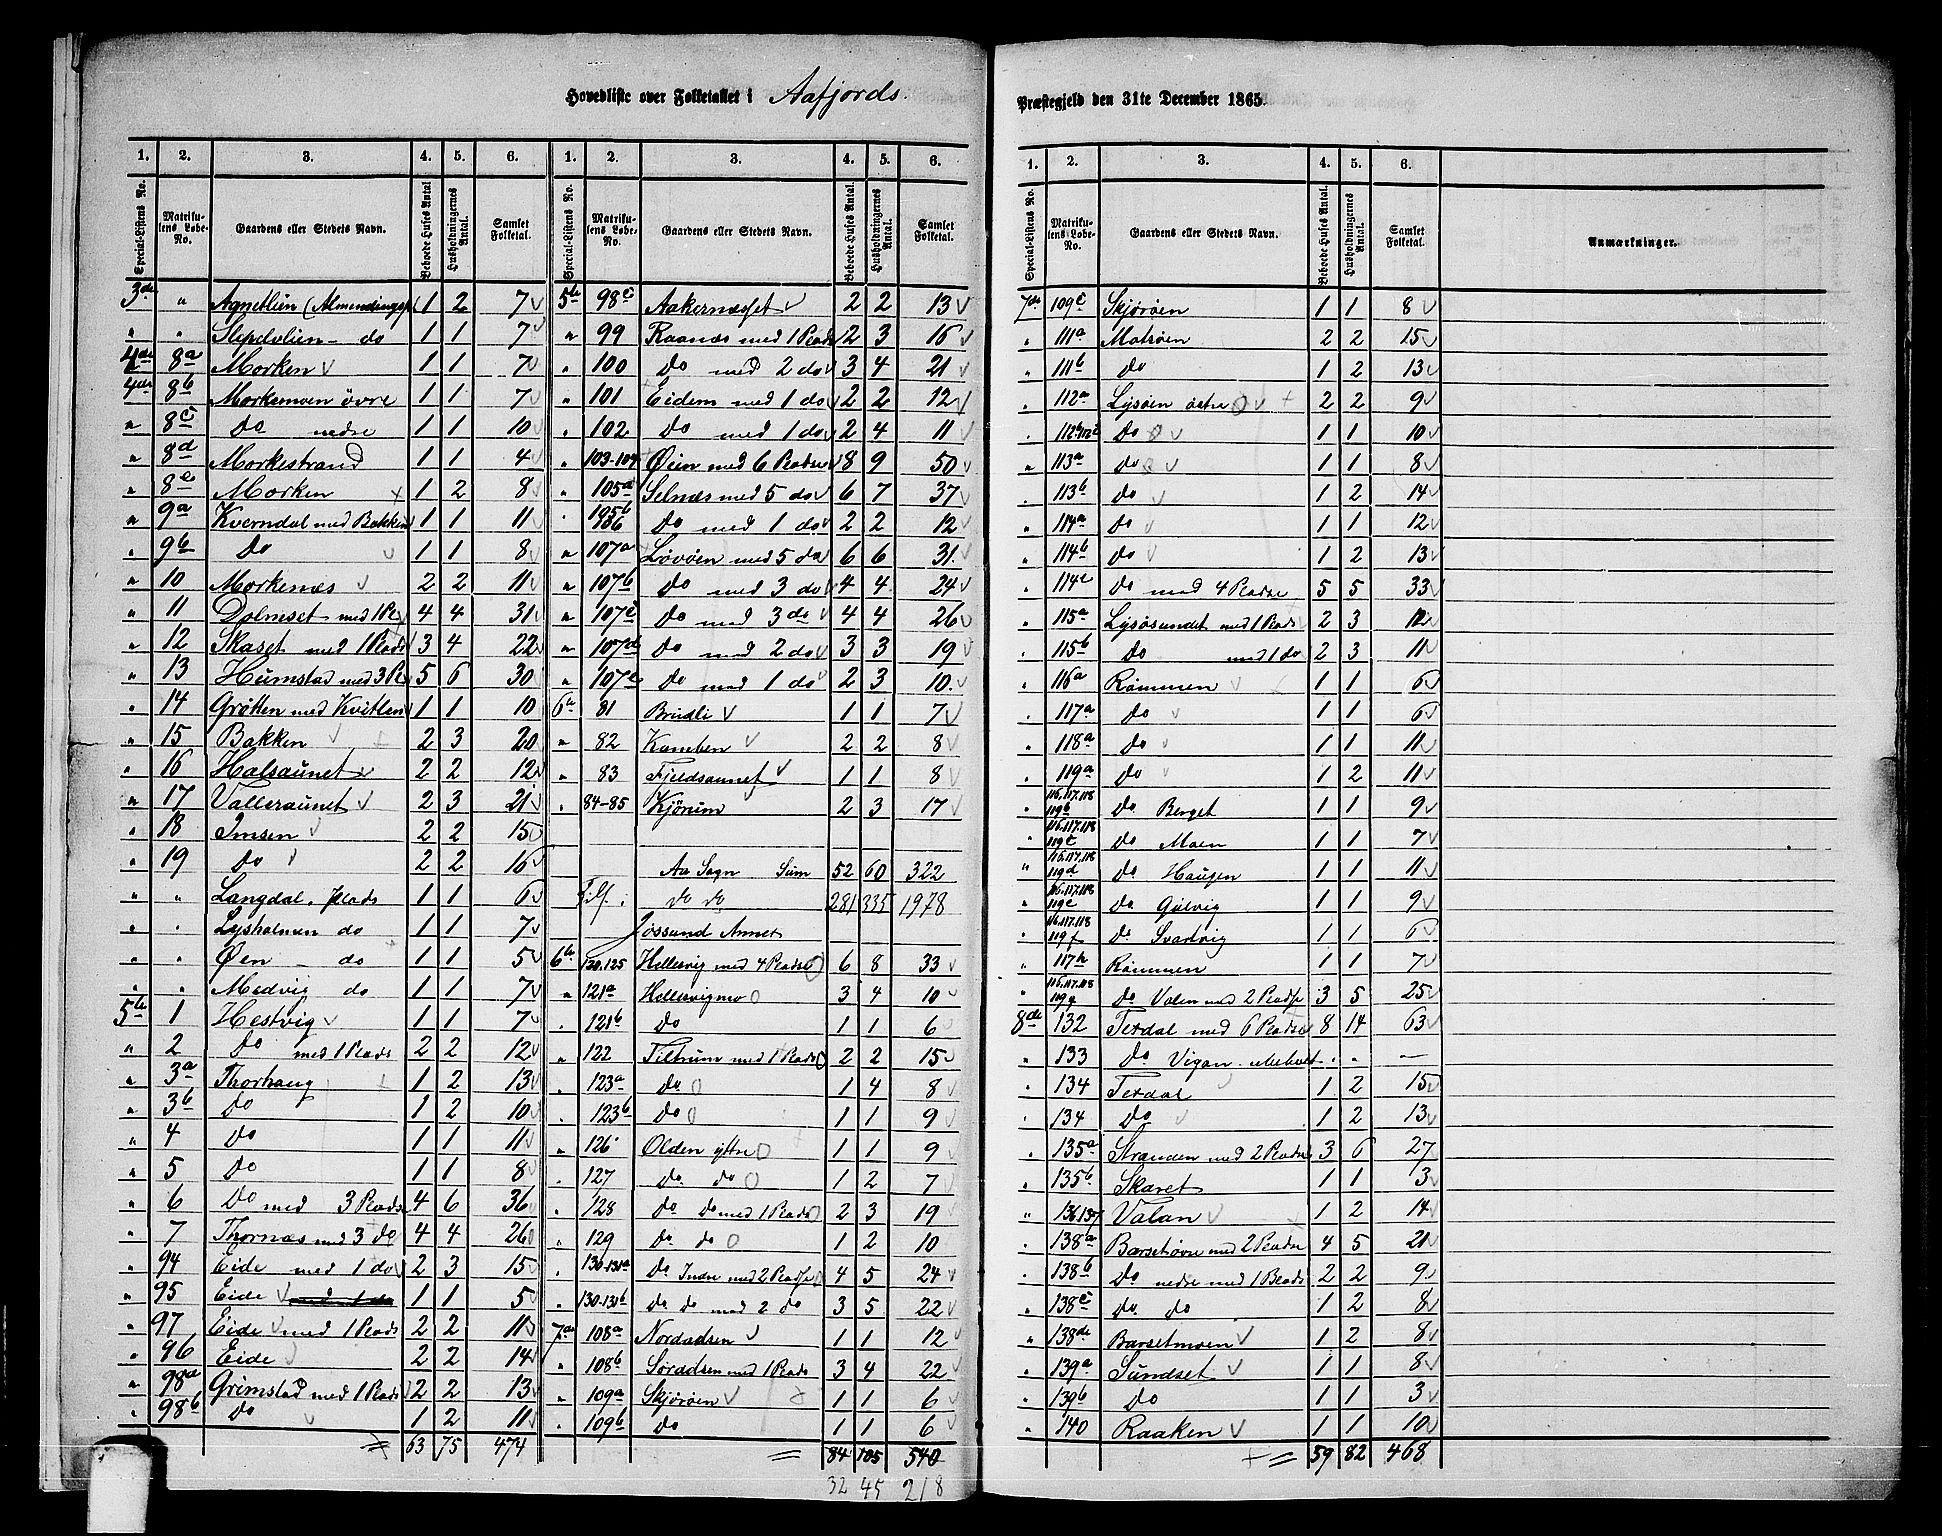 Hovedliste over Folketallet i Aafjords.
1. 2. 3. 4. 5. 6.
Special-Listens No. Matrikulens Løbe-No. Gaardens eller Stedets Navn. Beboede Huses Antal Husholdningernes Antal. Samlet Folketal.
3de " Agnetlien (Almendingspl 1 2 7
" " Slepdolien - do 1 1 7
4de 8a Morken 1 1 7
4de 8b Morkemoen övre 1 1 7
" 8c Do nedre 1 1 10
" 8d Morkestrand 1 1 4
" 8e Morken 1 2 8
" 9a Kverndal med Bakken 1 1 11
" 9b Do 1 1 8
" 10 Morkenæs 2 2 11
" 11 Dolmset med 1 Pl 4 4 31
" 12 Skaset med 1 Plads 3 4 22
" 13 Humstad med 3 Pl 5 6 30
" 14 Grötten med Kvitlen 1 1 10
" 15 Bakken 2 3 20
" 16 Halsaunet 2 2 12
" 17 Valleraunet 2 3 21
" 18 Imsen 2 2 15
" 19 Do 2 2 16
" " Langdal, plads 1 1 6
" " Lysholmen do 1 1 7
" " Øen - do 1 1 5
" " Medvig do 1 1 7
5te 1 Hestvig 1 1 7
" 2 Do med 1 Plads 2 2 12
" 3a Thorhaug 1 2 13
" 3b Do 1 2 10
" 4 Do 1 1 11
" 5 Do 1 1 8
" 6 Do med 3 Plads 4 6 36
" 7 Thornæs med 3 do 4 4 26
" 94 Eide med 1 do 2 3 15
" 95 Eide 1 1 5
" 97 Eide med 1 Plads 2 2 11
" 96 Eide 2 2 14
" 98a Grimstad med 1 Plads 2 2 13
" 98b Do 1 2 11
63 75 474
1. 2. 3. 4. 5. 6.
Special-Listens No. Matrikulens Løbe-No. Gaardens eller Stedets Navn. Beboede Huses Antal. Husholdningernes Antal. Samlet Folketal.
5te 98c Aakernæsset 2 2 13
" 99 Raanæs med 1 Plads 2 3 16
" 100 Do med 2 do 3 4 21
" 101 Eidem med 1 do 2 2 12
" 102 Do med 1 do 2 4 11
" 103-104 Øien med 6 Pladse 8 9 50
" 105a Selnæs med 5 do 6 7 37
" 105b 106 Do med 1 do 2 2 12
" 107a Løvöen med 5 do 6 6 31
" 107b Do med 3 do 4 4 24
" 107c Do med 3 do 4 4 26
" 107d Do med 2 do 3 3 19
" 107e Do med 1 do 2 3 10
6te 81 Brudli 1 1 7
" 82 Kamben 2 2 8
" 83 Fjeldsaunet 1 1 8
" 84-85 Kjörum 2 3 17
Aa Sogn Sum 52 60 322
Tilf. do do 281 335 1978
Jøssund Annex
6te 120.125 Hellesvig med 4 Pladse 6 8 33
" 121a Hellesvigmo 3 4 10
" 121b Do 1 1 6
" 122 Tiltrum med 1 Plads 2 2 15
" 123a Do 1 4 8
" 123b Do 1 1 9
" 126 Olden yttre 1 1 9
" 127 do do 1 2 7
" 128 Do Do med 1 Plads 2 3 19
" 129 Do do 1 2 10
" 130-131a Do Indre med 2 Pladse 4 5 24
" 130-131b do do med 2 do 3 5 22
7de 108a Nordadsen 1 1 12
" 108b Søradsen med 1 Plads 3 4 22
" 109a Skjörøen 1 1 6
" 109b Do 1 1 6
84 105 540
32 45 218
Præstegjeld den 31te December 1865.
1. 2. 3. 4. 5. 6.
Special-Listens No. Matrikulens Løbe-No. Gaardens eller Stedets Navn. Beboede Huses Antal. Husholdningernes Antal. Samlet Folketal. Anmærkninger.
7de 109c Skjöröen 1 1 8
" 111a Matsøen 2 2 15
" 111b Do 1 2 13
" 112a Lysøen östre 2 2 9
" 112b 112c Do 1 1 10
" 113a do 1 1 8
" 113b Do 1 2 14
" 114a Do 1 1 12
" 114b do 1 2 13
" 114c Do med 4 Pladse 5 5 33
" 115a Lysøsundet med 1 Plads 2 3 12
" 115b Do med 1 do 2 3 11
" 116a Römmen 1 1 6
" 117a do 1 1 6
" 118a Do 1 1 11
" 119a Do 1 2 11
" 116.117.118 119b Do Berget 1 1 9
" 116.117.118 119c Do Moen 1 1 7
" 116.117.118 119d Do Haugen 1 1 11
" 116.117.118 119e Do Gulvig 1 1 9
" 116.117.118 119f Do Svartvig 1 1 6
" 117h Römmen 1 1 7
" 116.117.118 119g Do Valen med 2 Pladse 3 5 25
8de 132 Terdal med 6 Pladse 8 14 63
" 133 Do Vigan. ubeboet . . —
" 134 Terdal 1 2 15
" 134 Do 1 2 13
" 135a Stranden med 2 Pladse 3 6 27
" 135b Skaret 1 1 3
" 136.137 Valan 1 2 14
" 138a Barsetøvre med 2 Pladse 4 5 21
" 138b Do nedre med 1 Plads 2 2 9
" 138c Do do 1 2 8
" 138d Barsetmoen 1 2 8
" 139a Sundset 1 1 8
" 139b Do 1 1 3
" 140 Raaken 1 1 10
59 82 468